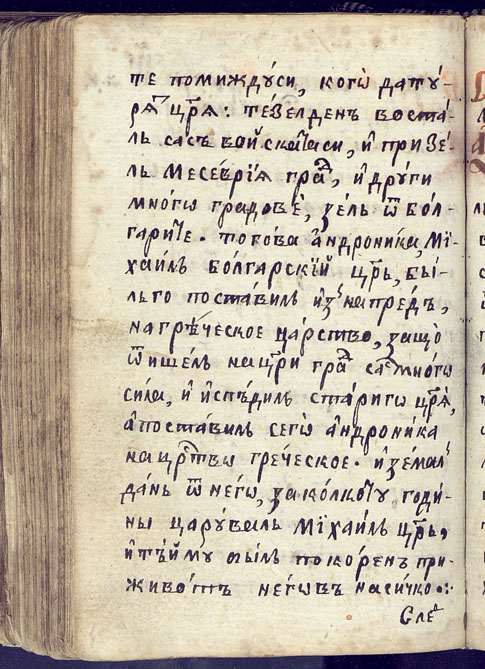 те помиждꙋси, кого̀ да тꙋ́-
рѧ҇т цр҃ѧ: те́зелденъ воста́-
лъ сасъ войскатаси, и҆ призе́-
лъ Месе́врїѧ гра́д, и҆ дрꙋги
мно́гѡ градовѐ, ѹ҆зелъ ѿ бо́л-
гарите. тогова а҆ндроника, Мї-
хаи́лъ бо́лгарскїй цр҃ь, бы́-
лъ го поста́вилъ и҆з напредъ,
на гре́ческое ца́рство, защо̀
ѿишелъ на цр҃и гра́д са мно́гѡ
сила, и҆ и҆спъдилъ ста́риго цр҃ѧ,
а҆ поста́вилъ сего̀ а҆ндрони́ка
на цр҇тво гре́ческое. и҆ зе́малъ
да́нь ѿ него̀, за ко́лкоту годи́-
ны царꙋвалъ Мїхаи́лъ цр҃ь,
и҆ тъ́й мꙋ былъ поко́ренъ при
живо́тъ не́говъ насичко:
След